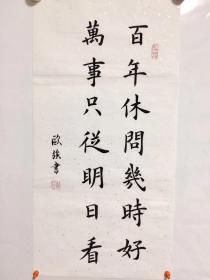 百年休問幾時好
萬事只從明日看
歐
書